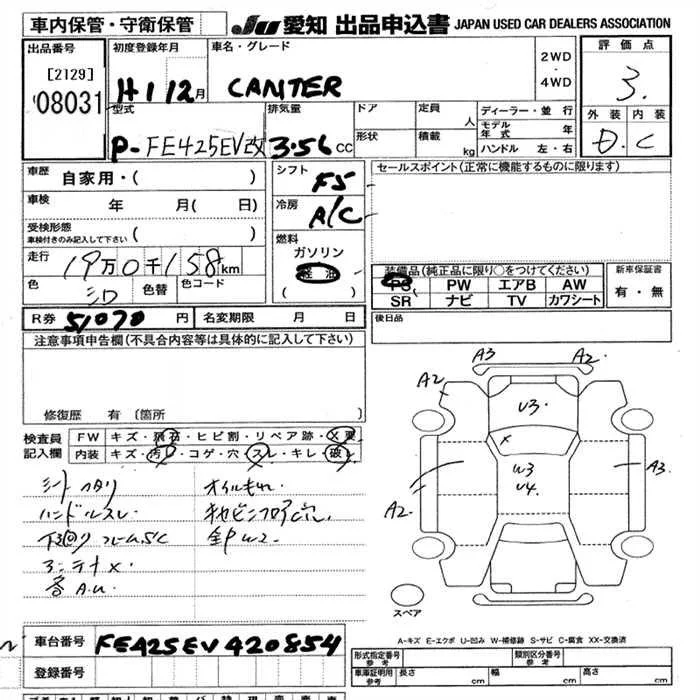 車内保管・守衛保管
JU 愛知 出品申込書 JAPAN USED CAR DEALERS ASSOCIATION
出品番号
[2129]
08031
初度登録年月
H 1 12月
車名・グレード
CANTER
2WD
・
4WD
評価点
3.
外装 内装
D. C
型式
P-FE425EV改
排気量
3.56 CC
ドア
形状
定員
人
積載
kg
ディーラー・並行
モデル年式 年
ハンドル 左・右
車歴
自家用・( )
車検
年 月( 日)
受検形態
車検付きのみ記入して下さい ( )
走行
19万0千158km
色
シロ
色替
色コード
シフト
F5
冷房
A/C
燃料
ガソリン
軽油
( )
セールスポイント(正常に機能するものに限ります)
装備品(純正品に限り○をつけてください)
PS PW エアB AW
SR ナビ TV カワシート
新車保証書
有・無
R券 51070 円
名変期限 月 日
後日品
注意事項申告欄(不具合内容等は具体的に記入して下さい)
修復歴 有 〔箇所 〕
検査員
記入欄
FW キズ・飛石・ヒビ割・リペア跡・X要
内装 キズ・汚・コゲ・穴・スレ・キレ・破レ
シートヘタリ
ハンドルスレ
下廻りフレームSC
オイルもれ
A3
A2
A2
U3
X
W3
U4
A2
A3
スペア
A-キズ E-エクボ U-凹み W-補修跡 S-サビ C-腐食 XX-交換済
車台番号 FE425EV420854
登録番号
形式指定番号
参考
類別区分番号
参考
車庫証明用
参考
長さ cm
幅 cm
高さ cm